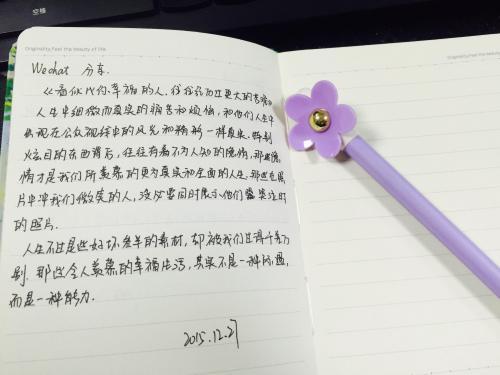 空格
Originality, Feel the beauty of life.
Wechat 分享.
《看似比你幸福的人，往往经历过更大的苦难》
人生中细微而真实的痛苦和烦恼，和他们人生中
出现在公众视线中的风光和精彩一样真实。特别
炫目的东西背后，往往有着不为人知的隐情，那些隐
情才是我们所羡慕的更为真实和全面的人生。那些在照
片中冲我们微笑的人，没必要同时展示他们
的照片.
人生不过是些好坏参半的素材，却被我们过得千差万
别. 那些令人羡慕的幸福生活，其实不是一种际遇，
而是一种能力.
2015.12.27
Originality, Feel the beaut